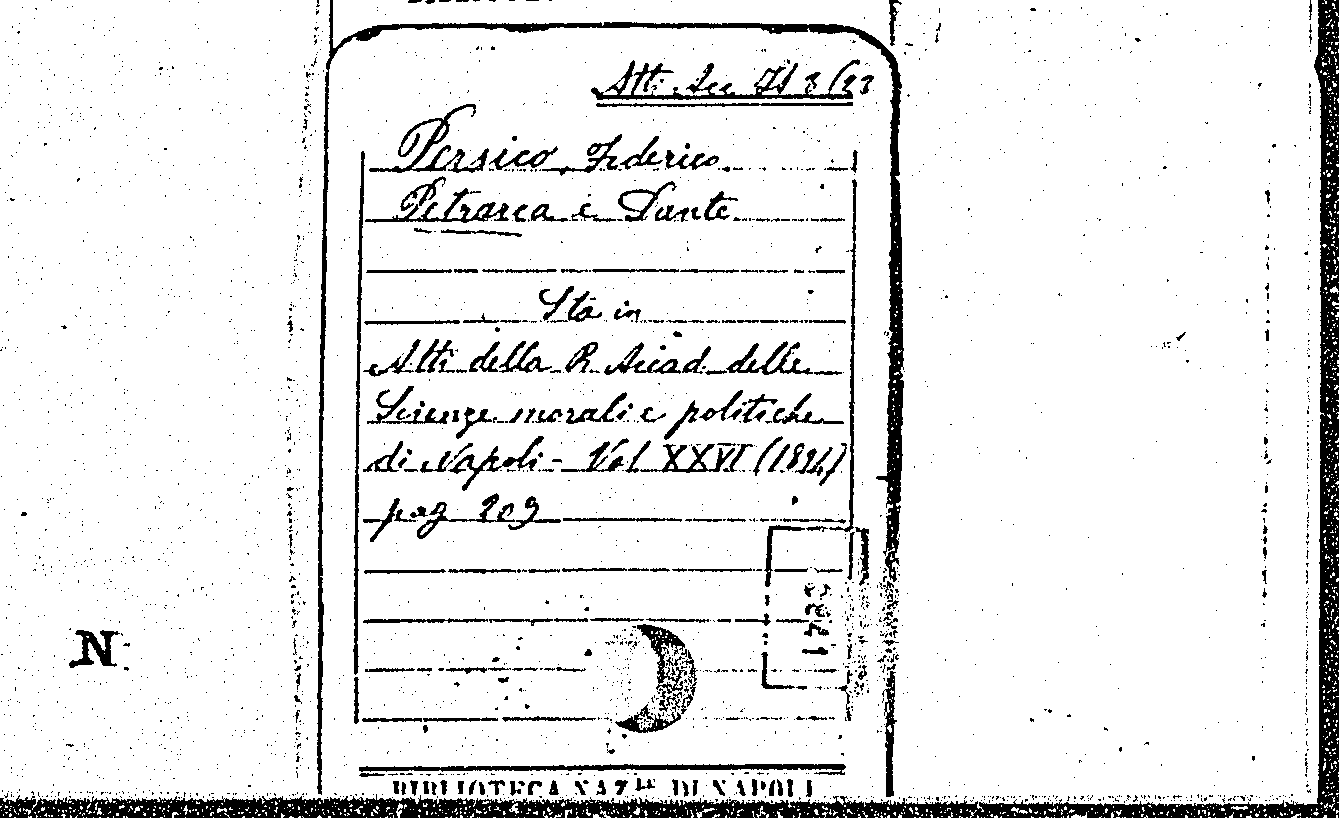 Atti. Acc
Persico, Federico.
Petrarca e Dante
Sta in
Atti della R. Accad. delle
Scienze morali e politiche
di Napoli - Vol XXVI (1894)
pag 209
N
BIBLIOTECA NAZ.LE DI NAPOLI